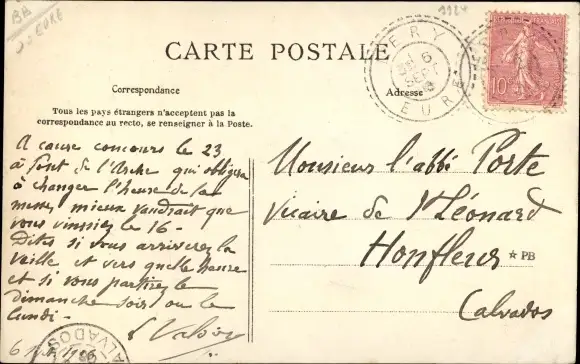 BB
CARTE POSTALE
Correspondance
Adresse
Tous les pays étrangers n'acceptent pas la
correspondance au recto, se renseigner à la Poste.
A cause concours le 23
à Pont de l'Arche qui obligera
à changer l'heure de la
messe, mieux vaudrait que
vous vinssiez le 16 -
Dites si vous arriverez la
veille et vers quelle heure
et si vous partirez le
dimanche soir ou le
lundi -
6
Monsieur l'abbé Porte
Vicaire de St Léonard
Honfleur
Calvados
★ PB
ERY
6
SEPT
EURE
REPUBLIQUE FRANÇAISE
10c
CALVADOS